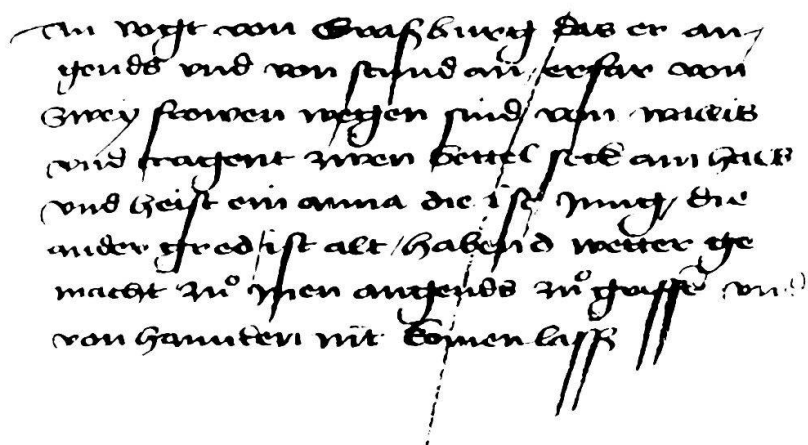 An vogt von Grasburg das er an-
gends vnd von stund an erfar von
zwey frowen wegen sind vom wallis
vnd tragent zwen bettel seck am hals
vnd heist ein anna die ist jung / die
ander gred / ist alt / habend wetter ge
macht zů jnen angends zů griffē vnd
von hannden nit komen lassē